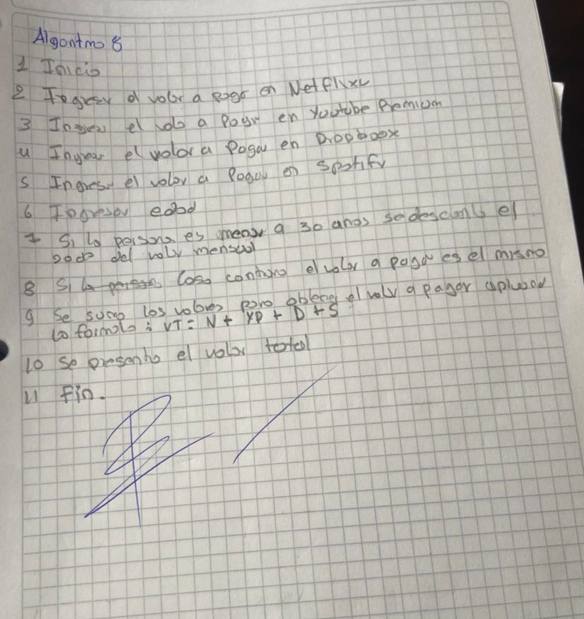 Algoritmo 8
1 Inicio
2 Ingresar el valor a pagar en Netflixe
3 Ingresar el valo a Pagar en Youtube Premium
4 Ingresar el valor a Pagar en Dropboox
5 Ingresar el valor a Pagar en Spotify
6 Ingresar edad
7 Si la persona es menor a 30 años se descuenta el
del valor mensual
8 Si la person Caso contrario el valor a pagar es el mismo
9 Se suma los valores para obtener el valor a pagar aplicando
la formula: VT = N + YP + D + S
10 Se presenta el valor total
11 Fin.